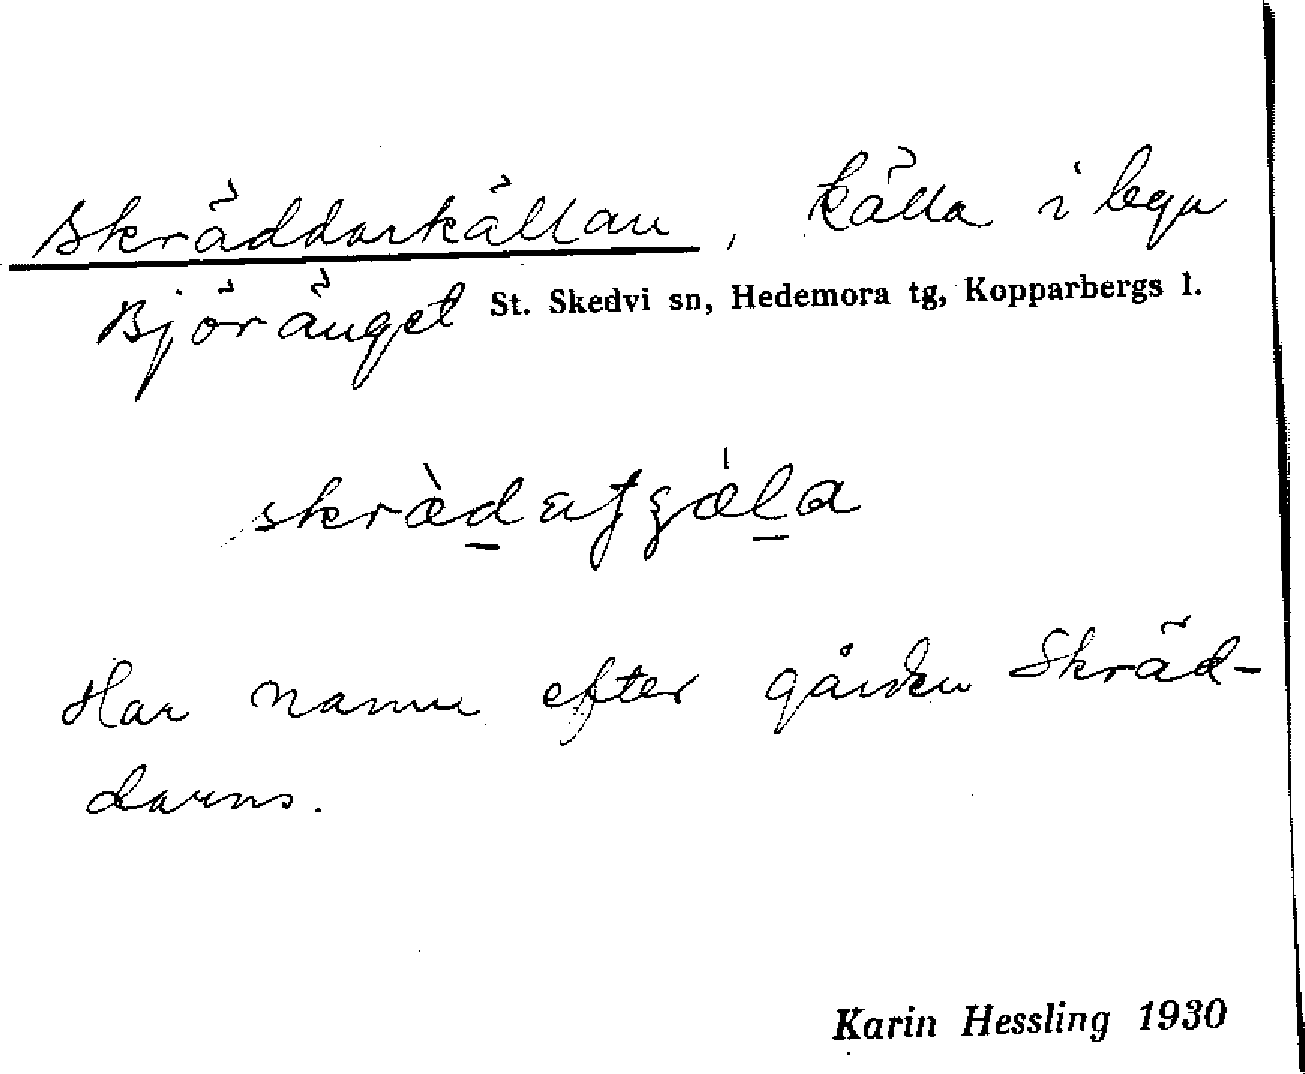 Skräddarkällan, källa i byn
Björänget St. Skedvi sn, Hedemora tg, Kopparbergs l.
Har namn efter gården Skräd-
darns.
Karin Hessling 1930